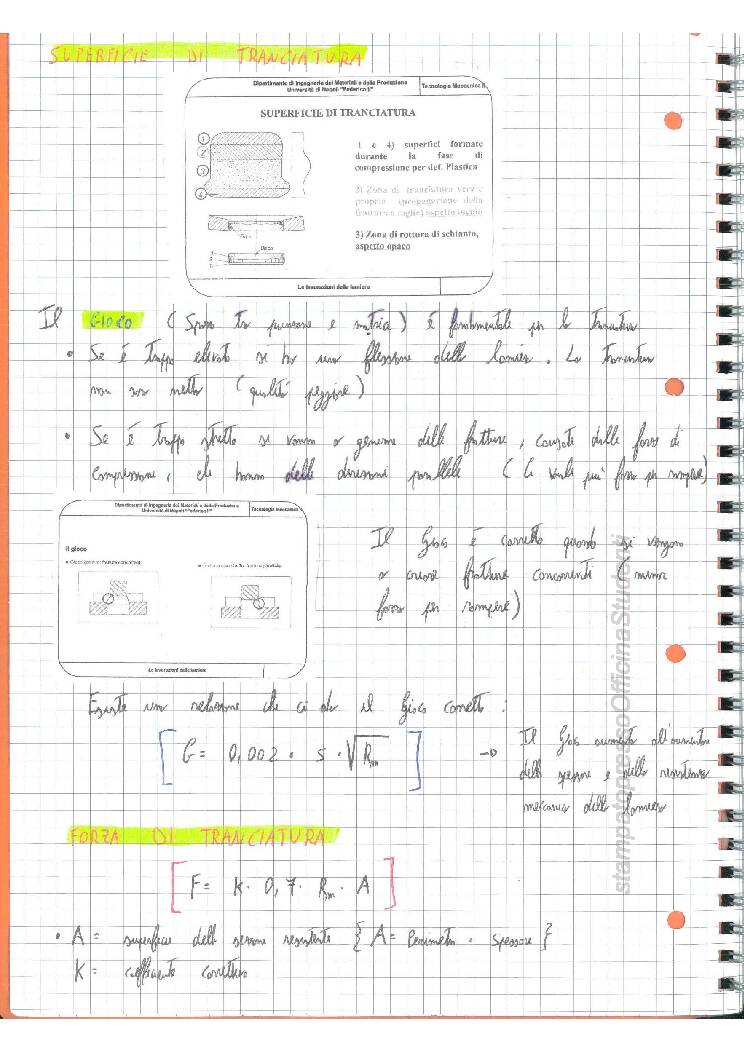 SUPERFICIE DI TRANCIATURA
Dipartimento di Ingegneria dei Materiali e della Produzione
Università di Napoli "Federico II"
Tecnologia Meccanica II
SUPERFICIE DI TRANCIATURA
1
2
3
4
1 e 4) superfici formate
durante la fase di
compressione per def. Plastica
2) Zona di tranciatura vera e
propria (propagazione della
frattura a taglio) aspetto lucido
3) Zona di rottura di schianto,
aspetto opaco
Le lavorazioni delle lamiere
Il GIOCO (Spazio tra punzone e matrice) é fondamentale per la tranciatura
• Se é troppo elevato si ha una flessione della lamiera. La tranciatura
non sarà netta (qualità peggiore)
• Se é troppo stretto si vanno a generare delle fratture, causate dalle forze di
compressione, che hanno delle direzioni parallele (Ci vorrà più forza per rompere)
Dipartimento di Ingegneria dei Materiali e della Produzione
Università di Napoli "Federico II"
Tecnologia Meccanica
Il gioco
Le lavorazioni delle lamiere
Il Gioco é corretto quando si vengono
a creare fratture concorrenti (minor
forza per rompere)
Esiste una relazione che ci da il Gioco corretto:
[ G = 0,002 · s · √Rm ]
→ Il Gioco aumenta all'aumentare
dello spessore e della resistenza
meccanica della lamiera
FORZA DI TRANCIATURA
[ F = K · 0,7 · Rm · A ]
• A = superficie della sezione resistente { A = Perimetro · Spessore }
K = coefficiente correttivo
stampatopressoOfficinaStudenti